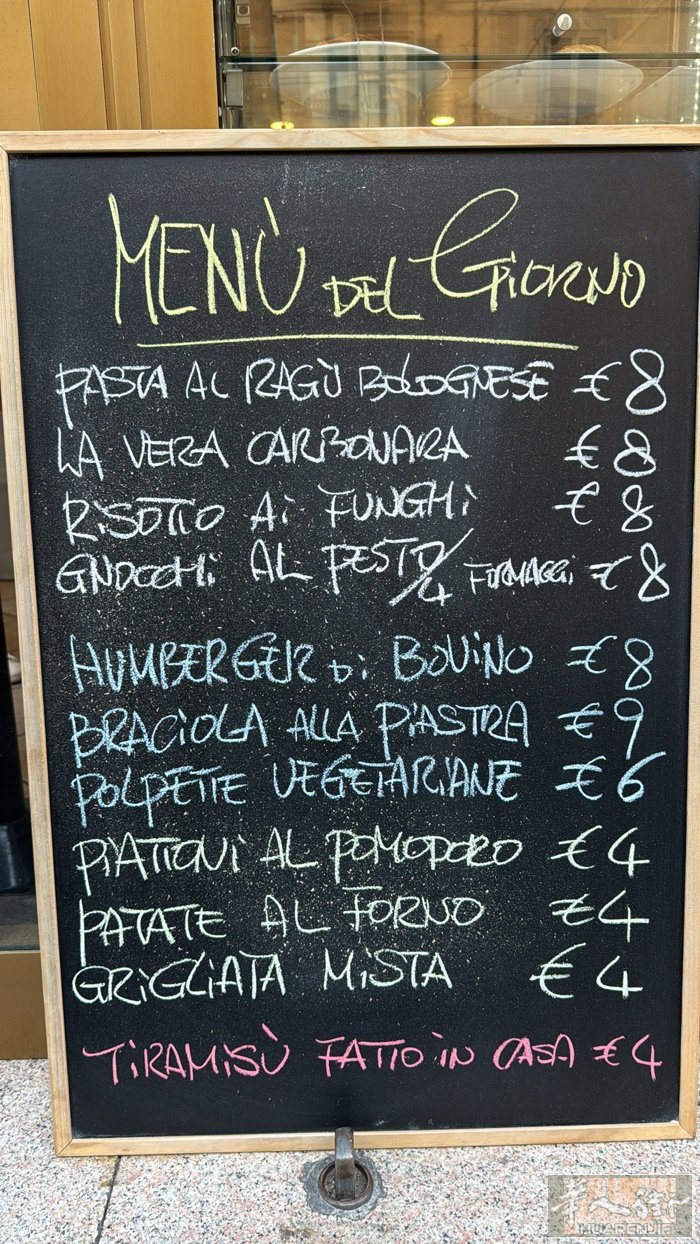 MENÙ DEL GIORNO
PASTA AL RAGÙ BOLOGNESE € 8
LA VERA CARBONARA € 8
RISOTTO AI FUNGHI € 8
GNOCCHI AL PESTO/4 FORMAGGI € 8
HUMBERGER DI BOVINO € 8
BRACIOLA ALLA PIASTRA € 9
POLPETTE VEGETARIANE € 6
PIATTONI AL POMODORO € 4
PATATE AL FORNO € 4
GRIGLIATA MISTA € 4
TIRAMISÙ FATTO IN CASA € 4
华人街
HUARENJIE